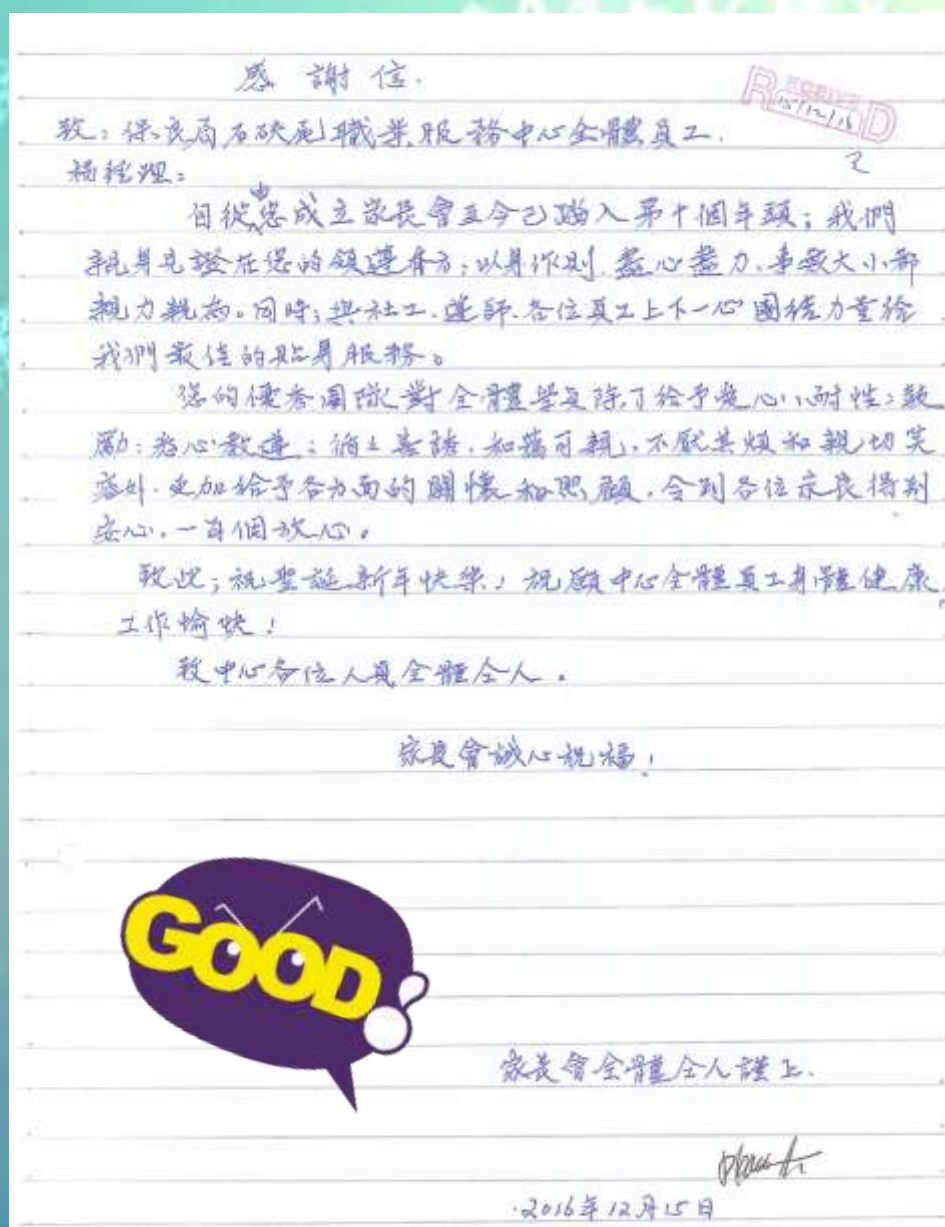 感謝信.
RECEIVED
15/12/16
致：保良局石硤尾職業服務中心全體員工.
楊經理：
自從您成立家長會至今已踏入第十個年頭；我們
親身見證在您的領導有方；以身作則.盡心盡力.事務大小都
親力親為。同時；與社工.導師.各位員工上下一心團結力量給
我們最佳的貼身服務。
您的優秀團隊對全體學員除了給予愛心、耐性；鼓
勵；悉心教導；循循善誘.和藹可親.不厭其煩和親切笑
容外.更加給予各方面的關懷和照顧.令到各位家長特別
安心.一百個放心。
致此；祝聖誕新年快樂！祝願中心全體員工身體健康,
工作愉快！
致中心各位人員全體仝人.
家長會誠心祝福！
GOOD!
家長會全體仝人謹上.
2016年12月15日